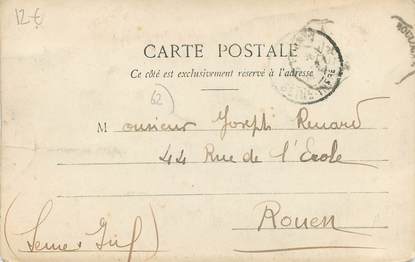 12€
CARTE POSTALE
Ce côté est exclusivement reservé à l'adresse
62
Monsieur Joseph Renard
44 Rue de l'Ecole
Rouen
(Seine Inf)